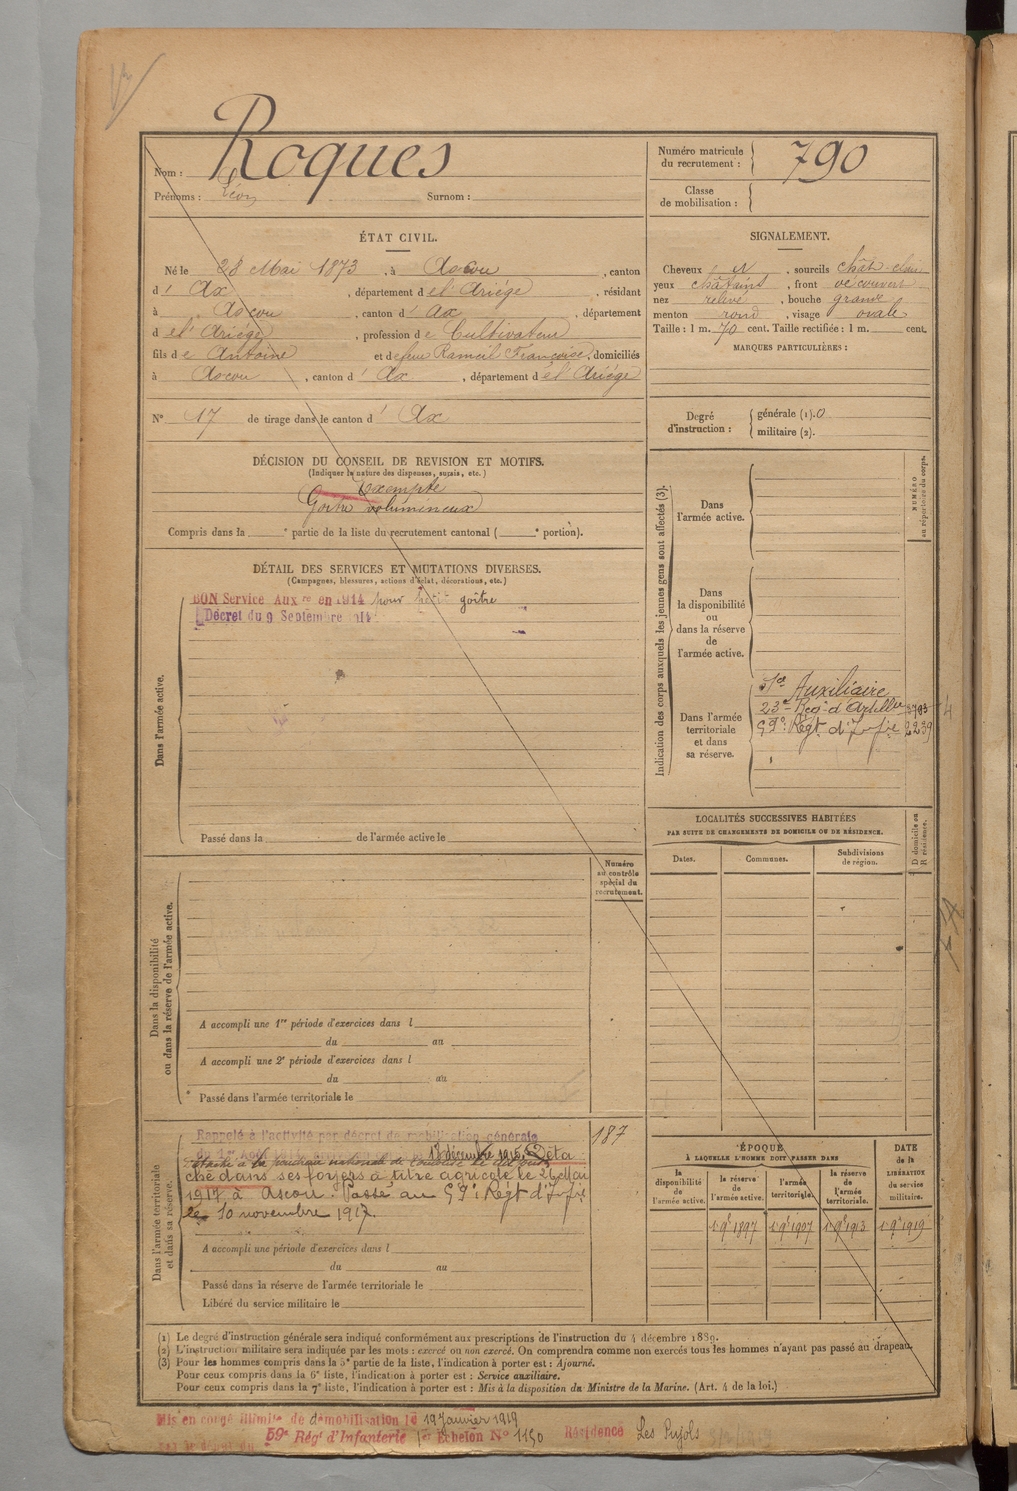 Roques
Nom :
Prénoms : Léon Surnom :
Numéro matricule
du recrutement : 790
Classe
de mobilisation :
ÉTAT CIVIL.
Né le 28 Mai 1873, à Ascou, canton
d' Ax, département de l'Ariége, résidant
à Ascou, canton d' Ax, département
d el' Ariége, profession de Cultivateur
fils de Antoine et de feu Rameil Françoise, domiciliés
à Ascou, canton d' Ax, département d el' Ariége
N° 17 de tirage dans le canton d' Ax
SIGNALEMENT.
Cheveux N, sourcils chât. clair
yeux châtains, front découvert
nez relevé, bouche grande
menton rond, visage ovale
Taille : 1 m. 70 cent. Taille rectifiée : 1 m. cent.
MARQUES PARTICULIÈRES :
Degré
d'instruction :
générale (1). 0
militaire (2).
DÉCISION DU CONSEIL DE REVISION ET MOTIFS.
(Indiquer la nature des dispenses, sursis, etc.)
Exempté
Goitre volumineux
Compris dans la e partie de la liste du recrutement cantonal ( e portion).
DÉTAIL DES SERVICES ET MUTATIONS DIVERSES.
(Campagnes, blessures, actions d'éclat, décorations, etc.)
BON Service Aux re en 1914 pour petit goitre
Décret du 9 Septembre 1914
Dans l'armée active.
Passé dans la de l'armée active le
Indication des corps auxquels les jeunes gens sont affectés (3).
NUMÉRO
au répertoire du corps.
Dans
l'armée active.
Dans
la disponibilité
ou
dans la réserve
de
l'armée active.
Dans l'armée
territoriale
et dans
sa réserve.
Sce Auxiliaire
23e Reg. d'Artillie
59e Régt d'Infie 2239
LOCALITÉS SUCCESSIVES HABITÉES
PAR SUITE DE CHANGEMENTS DE DOMICILE OU DE RÉSIDENCE.
Dates. Communes. Subdivisions
de région.
D domicile ou
R résidence.
Numéro
au contrôle
spécial du
recrutement.
Dans la disponibilité
ou dans la réserve de l'armée active.
A accompli une 1re période d'exercices dans l
du au
A accompli une 2e période d'exercices dans l
du au
Passé dans l'armée territoriale le
187
Dans l'armée territoriale
et dans sa réserve.
Rappelé à l'activité par décret de mobilisation générale
du 1er Août 1914. 13 décembre 1915. Déta
ché dans ses foyers à titre agricole le 26 Mai
1917 à Ascou. Passé au 59e Régt d'Infie
le 10 novembre 1917.
A accompli une période d'exercices dans l
du au
Passé dans la réserve de l'armée territoriale le
Libéré du service militaire le
ÉPOQUE
À LAQUELLE L'HOMME DOIT PASSER DANS
DATE
de la
LIBÉRATION
du service
militaire.
la
disponibilité
de
l'armée active.
la réserve
de
l'armée active.
l'armée
territoriale.
la réserve
de
l'armée
territoriale.
1 9e 1897 1 9e 1907 1 9e 1913 1 9e 1919
(1) Le degré d'instruction générale sera indiqué conformément aux prescriptions de l'instruction du 4 décembre 1889.
(2) L'instruction militaire sera indiquée par les mots : exercé ou non exercé. On comprendra comme non exercés tous les hommes n'ayant pas passé au drapeau.
(3) Pour les hommes compris dans la 5e partie de la liste, l'indication à porter est : Ajourné.
Pour ceux compris dans la 6e liste, l'indication à porter est : Service auxiliaire.
Pour ceux compris dans la 7e liste, l'indication à porter est : Mis à la disposition du Ministre de la Marine. (Art. 4 de la loi.)
Mis en congé illimité de démobilisation le 19 Janvier 1919
59e Régt d'Infanterie 1er Echelon N° 1150 Résidence Les Pujols